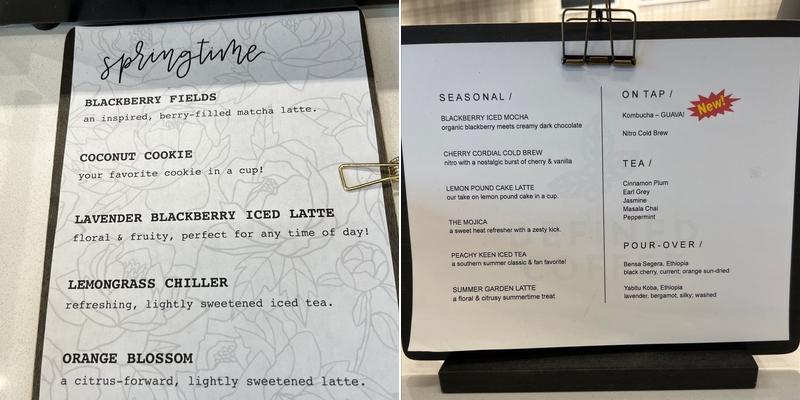 springtime
BLACKBERRY FIELDS
an inspired, berry-filled matcha latte.
COCONUT COOKIE
your favorite cookie in a cup!
LAVENDER BLACKBERRY ICED LATTE
floral & fruity, perfect for any time of day!
LEMONGRASS CHILLER
refreshing, lightly sweetened iced tea.
ORANGE BLOSSOM
a citrus-forward, lightly sweetened latte.
SEASONAL /
BLACKBERRY ICED MOCHA
organic blackberry meets creamy dark chocolate
CHERRY CORDIAL COLD BREW
nitro with a nostalgic burst of cherry & vanilla
LEMON POUND CAKE LATTE
our take on lemon pound cake in a cup.
THE MOJICA
a sweet heat refresher with a zesty kick.
PEACHY KEEN ICED TEA
a southern summer classic & fan favorite!
SUMMER GARDEN LATTE
a floral & citrusy summertime treat
ON TAP /
Kombucha – GUAVA!
New!
Nitro Cold Brew
TEA /
Cinnamon Plum
Earl Grey
Jasmine
Masala Chai
Peppermint
POUR-OVER /
Bensa Segera, Ethiopia
black cherry, current; orange sun-dried
Yabitu Koba, Ethiopia
lavender, bergamot, silky; washed